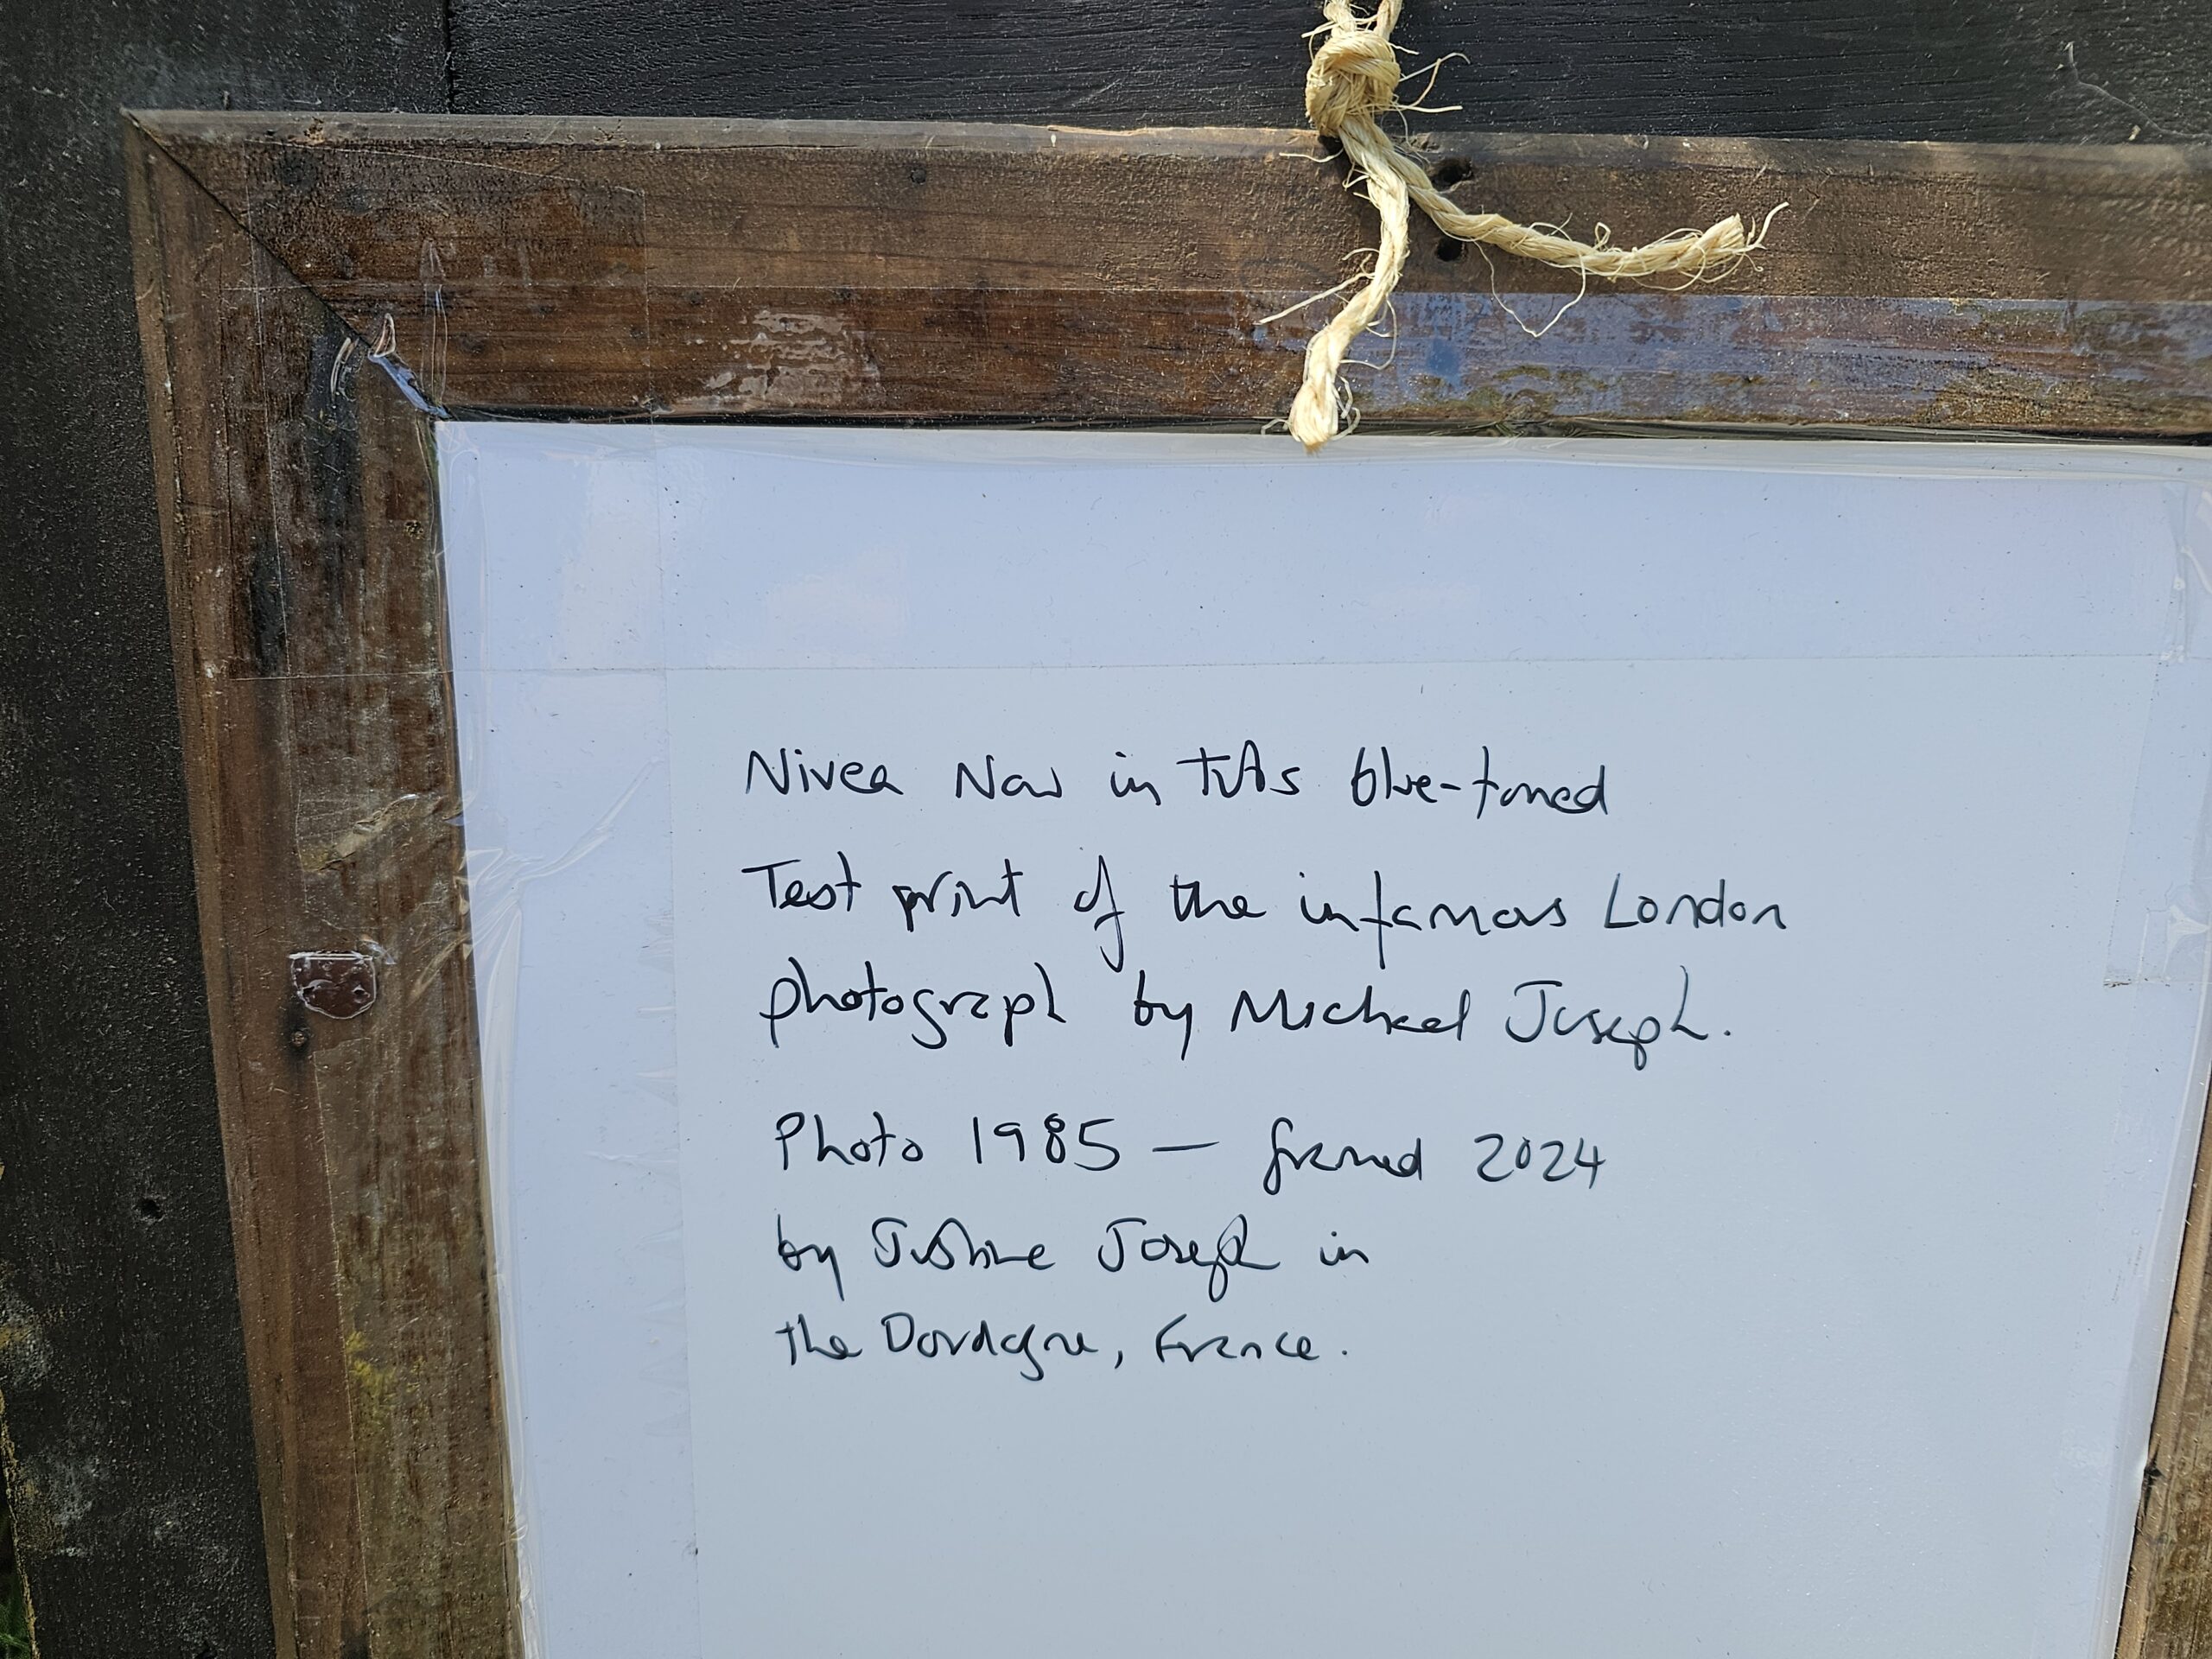 Nivea Now in this blue-toned
Test print of the infamous London
photograph by Michael Joseph.
Photo 1985 — framed 2024
by Justine Joseph in
the Dordogne, France.